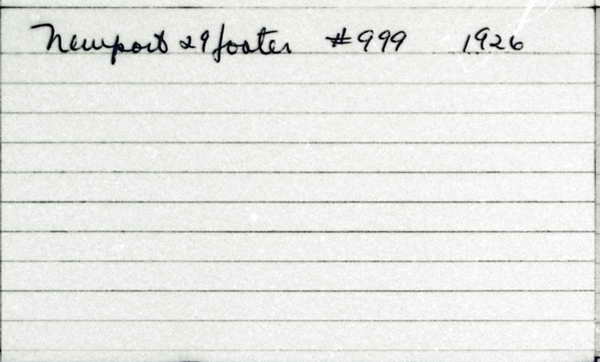 Newport 29 footer #999 1926